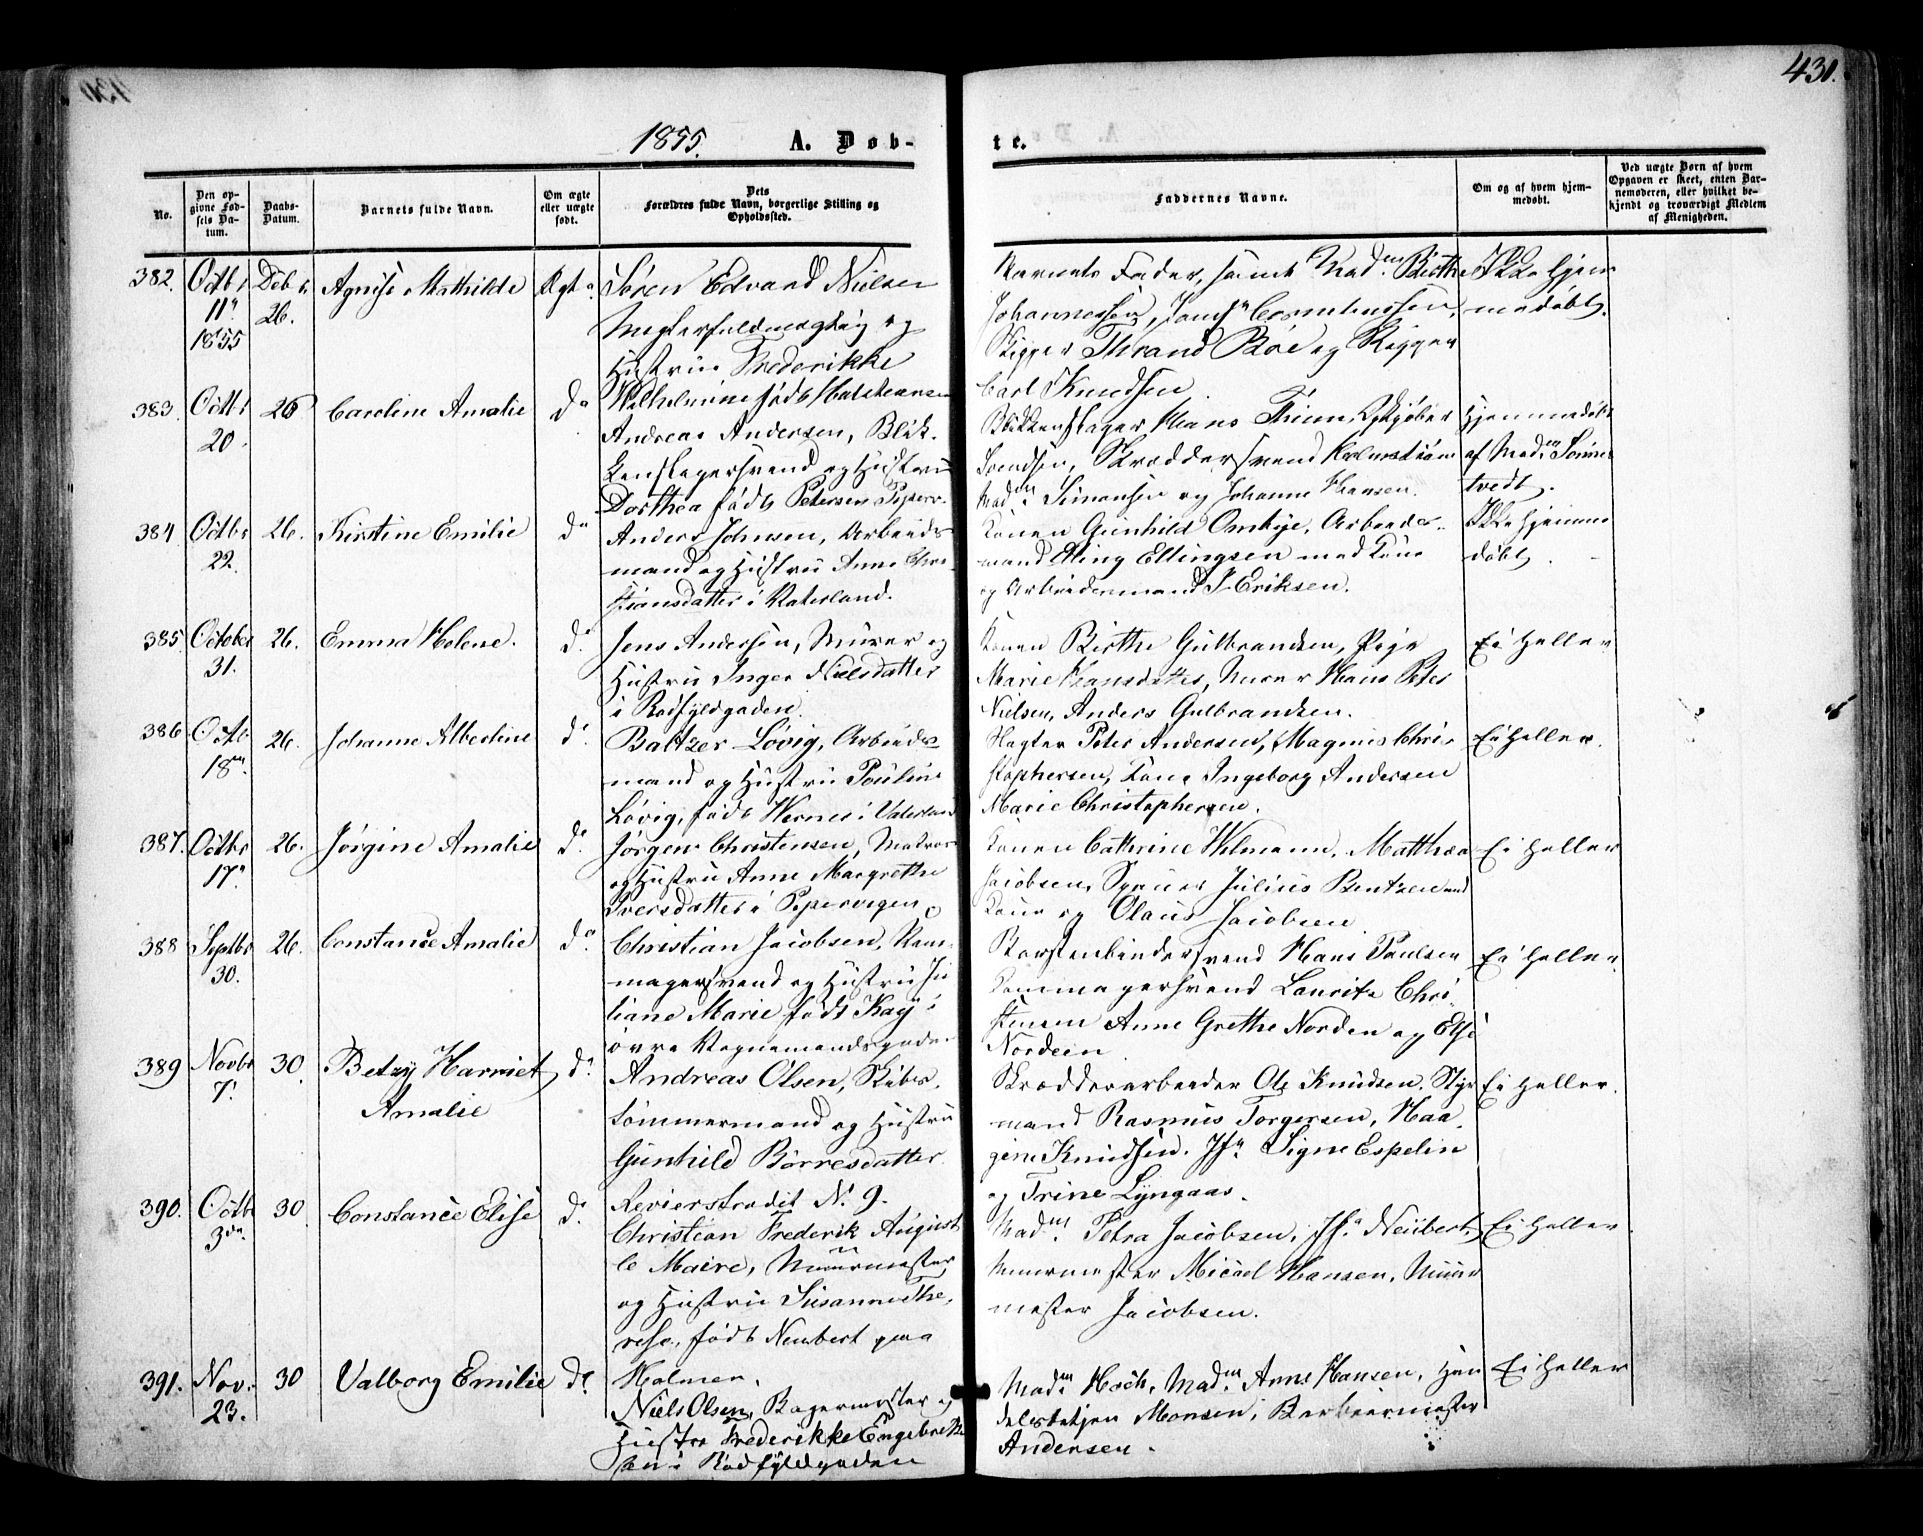 431.
1855. A. Døb-
te.
No.
Den op-
givne Fød-
sels Da-
tum.
Daabs-
Datum.
Barnets fulde Navn.
Om ægte
eller uægte
født.
Dets
Forældres fulde Navn, borgerlige Stilling og
Opholdssted.
Faddernes Navne.
Om og af hvem hjem-
medøbt.
Ved uægte Børn af hvem
Opgaven er skeet, enten Bar-
nemoderen, eller hvilket be-
kjendt og troværdigt Medlem
af Menigheden.
382. Octb
11te
1855
Døbt
26.
Agnise Mathilde
Ægt
Søren Edvard Nielsen
Mæglerfuldmægtig og
Hustru Frederikke
Wilhelmine født
Barnets Fader, samt Madm Birthe
Johannessen,
Skipper Thrand Bøe og Skipper
Carl Knudsen.
Ikke hjem
medøbt.
383. Octbr
20.
26
Caroline Amalie
do
Andreas Andersen, Blik-
kenslagersvend og Hustru
Dorthea født Petersen Piperv.
Blikkenslager Hans Thime,
Svendsen, Skræddersvend
Madm Simensen og Johanne Hansen.
Hjemmedøbt
af Madm Sønne
tvedt.
384 Octbr
22.
26.
Kirstine Emilie
do
Anders Johnsen, Arbeids-
mand og Hustru Anne Chri-
stiansdatter i Vaterland.
Konen Gunhild Omtye, Arbeids-
mand Elling Ellingsen med Kone
og Arbeidsmand J. Eriksen.
Ikke hjemme
døbt.
385 October
31.
26.
Emma Helene.
do
Jens Andersen, Murer og
Hustru Inger Nielsdatter
i Rødfyldgaden.
Konen Birthe Gulbrandsen, Pige
Marie Hansdatter, Murer Hans Peter
Nielsen, Anders Gulbrandsen.
Ei heller
386 Octb.
18de
26.
Johanne Albertine
do
Baltzer Løvig, Arbeids-
mand og Hustru Pouline
Løvig, født Wernes i Vaterland
Vægter Peter Andersen, Magnus Chri-
stophersen, Kone Ingeborg Andersen
Marie Christophersen.
Ei heller.
387. Octbr
17de
26.
Jørgine Amalie
do
Jørgen Christensen, Matros
og Hustru Anne Margrethe
Iversdatter i Pipervigen
Konen Cathrine Wilmann, Matthea
Jacobsen, Julius Bentzen med
Kone og Olaus Jacobsen
Ei heller
388 Septbr
30.
26.
Constance Amalie
do
Christian Jacobsen, Kam-
magersvend og Hustru Ju
liane Marie født Kay i
øvre Vognmandsgade
Børstenbindersvend Hans Paulsen
Kammagersvend Lauritz Chri-
stensen Anne Grethe Norden og Else
Nordeen
Ei heller
389 Novbr
7.
30.
Betzy Harriet
Amalie
do
Andreas Olsen, Skibs-
tømmermand og Hustru
Gunhild Børresdatter
Revierstrædet No 9.
Skrædderarbeider Ole Knudsen, Styr
mand Rasmus Torgersen, Haa-
gine Knudsen, Jfr Signe Espelin
og Trine Lyngaas.
Ei heller.
390. Octbr
3die
30
Constance Elise
do
Christian Frederik August
le Maire, Muurmester
og Hustru Susanne The-
rese, født Neubert paa
Holmen.
Madm Petra Jacobsen, Jfr Neubert,
Muurmester Micael Hansen, Muur
mester Jacobsen.
Ei heller.
391. Nov.
23.
30
Valborg Emilie
do
Niels Olsen, Bagermester og
Hustru Frederikke Engebret
sen i Rødfyldgaden
Madm Hoch, Madm Anne Hansen, Han
delsbetjen Monsen, Barbeermester
Andersen.
Ei heller